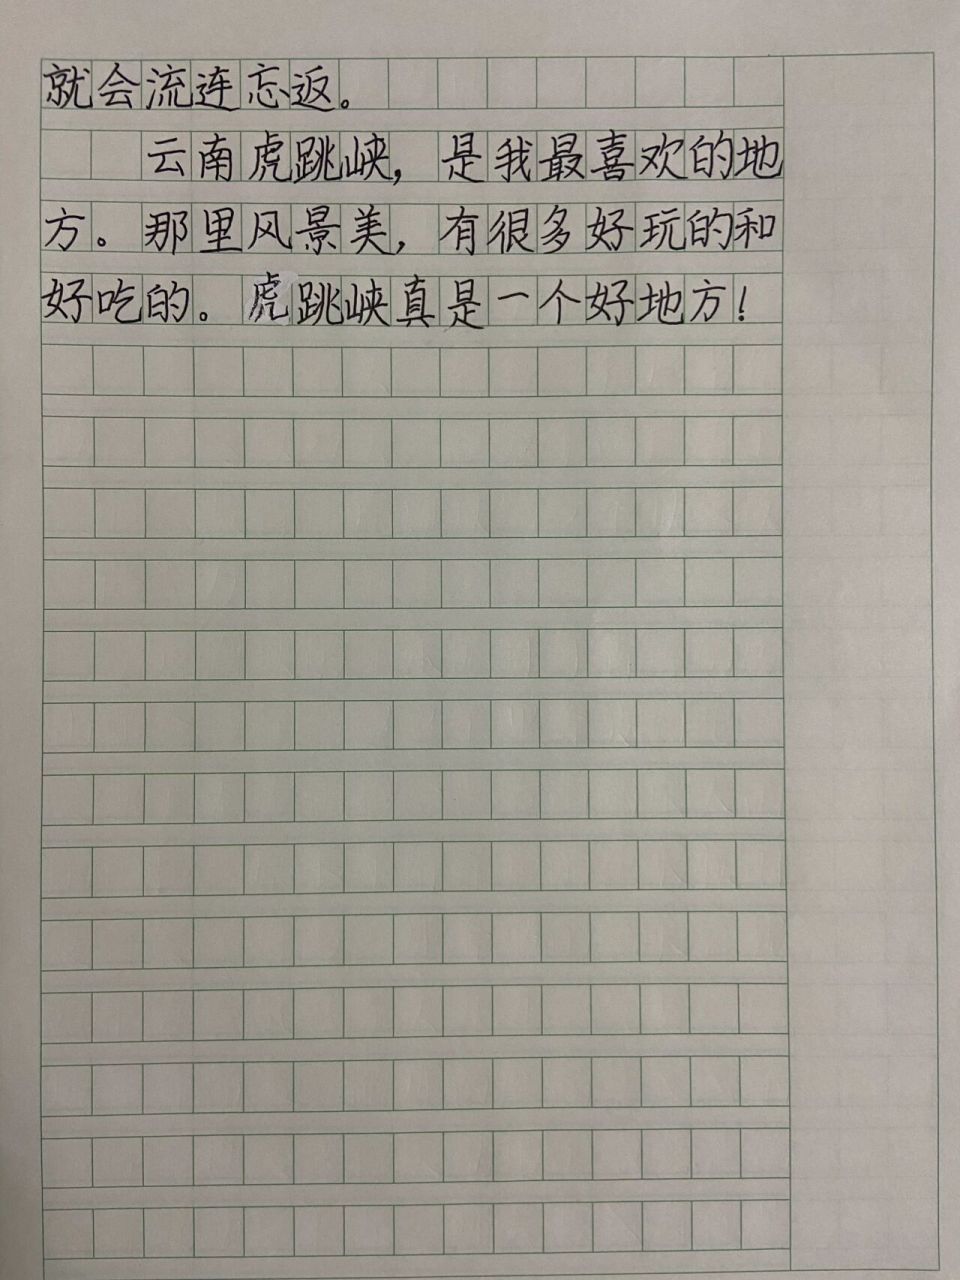 就会流连忘返。
云南虎跳峡，是我最喜欢的地
方。那里风景美，有很多好玩的和
好吃的。虎跳峡真是一个好地方！